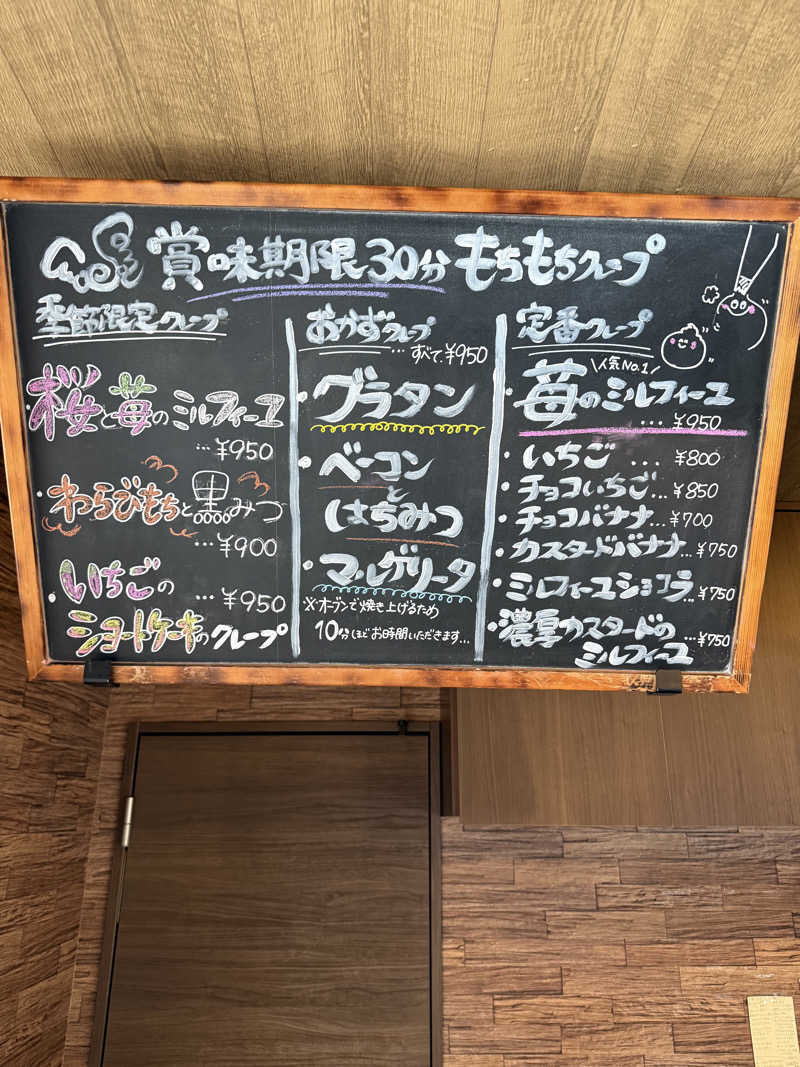 賞味期限30分 もちもちクレープ
季節限定クレープ
桜と苺のミルフィーユ
…¥950
わらびもちと黒みつ
…¥900
いちごの
…¥950
ショートケーキのクレープ
おかずクレープ
…すべて¥950
・グラタン
・ベーコン
と
はちみつ
・マルゲリータ
※オーブンで焼き上げるため
10分ほどお時間いただきます…
定番クレープ
\人気No.1/
・苺のミルフィーユ
…¥950
・いちご…¥800
・チョコいちご…¥850
・チョコバナナ…¥700
・カスタードバナナ…¥750
・ミルフィーユショコラ…¥750
・濃厚カスタードの…¥750
ミルフィーユ